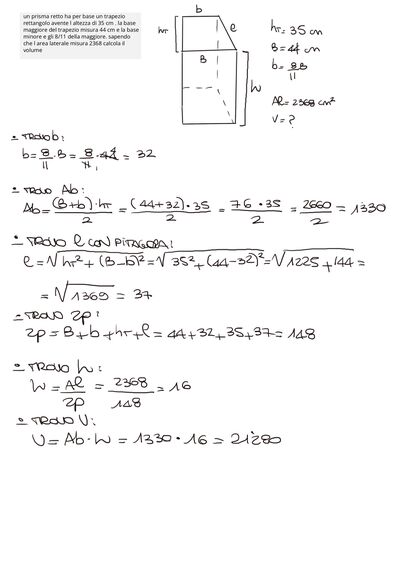 un prisma retto ha per base un trapezio
rettangolo avente l altezza di 35 cm . la base
maggiore del trapezio misura 44 cm e la base
minore e gli 8/11 della maggiore. sapendo
che l area laterale misura 2368 calcola il
volume
b
hr
l
B
h
hr = 35 cm
B = 44 cm
b = 8B/11
Al = 2368 cm²
V = ?
- TROVO b:
b = 8/11 · B = 8/11 · 44 = 32
- TROVO Ab:
Ab = (B+b)·hr/2 = (44+32)·35/2 = 76·35/2 = 2660/2 = 1330
- TROVO l CON PITAGORA:
l = √hr² + (B-b)² = √35² + (44-32)² = √1225 + 144 =
= √1369 = 37
- TROVO 2p:
2p = B + b + hr + l = 44 + 32 + 35 + 37 = 148
- TROVO h:
h = Al/2p = 2368/148 = 16
- TROVO V:
V = Ab · h = 1330 · 16 = 21280